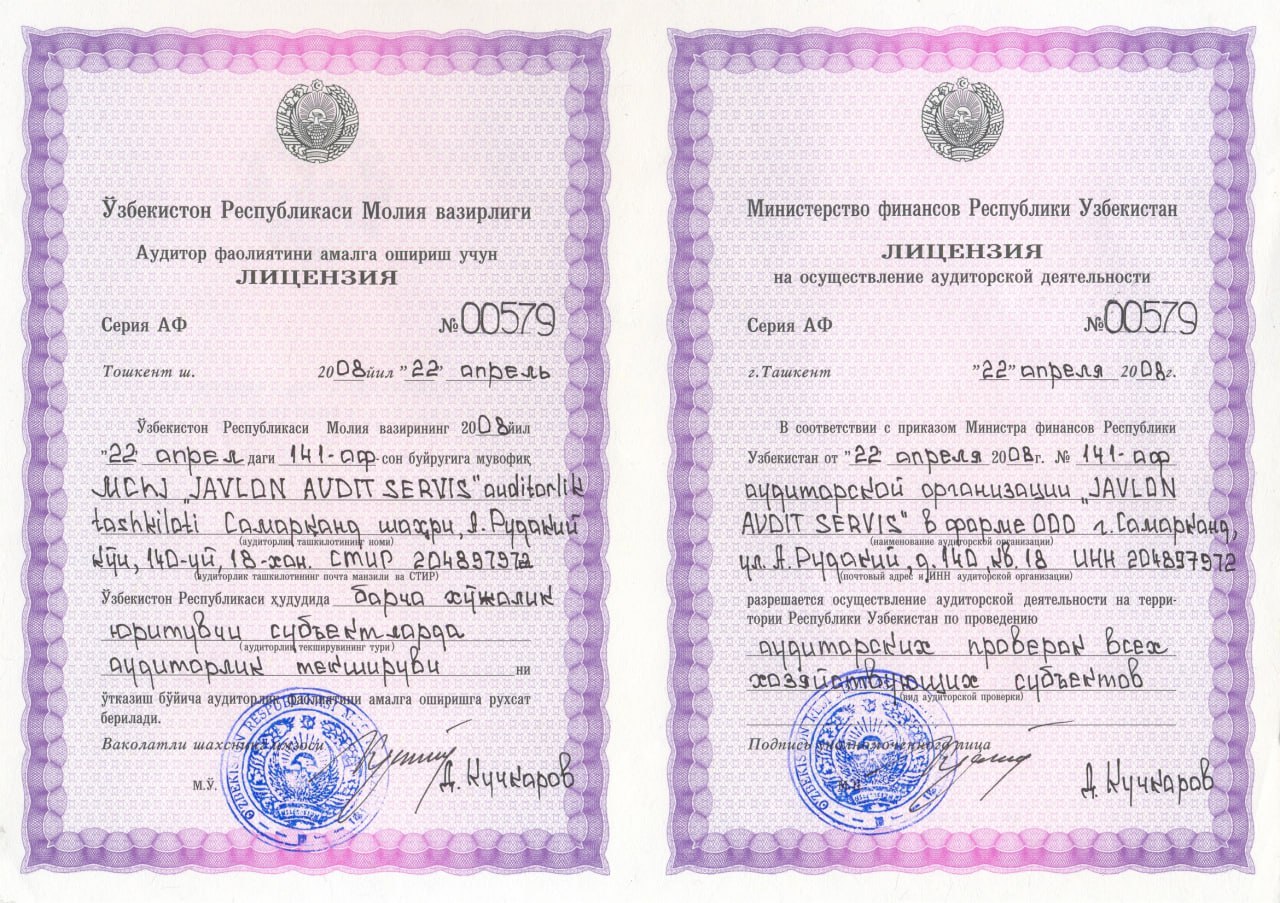 Ўзбекистон Республикаси Молия вазирлиги
Аудитор фаолиятини амалга ошириш учун
ЛИЦЕНЗИЯ
Серия АФ №00579
Тошкент ш. 2008 йил "22" апрель
Ўзбекистон Республикаси Молия вазирининг 2008 йил
"22" апрел даги 141-аф-сон буйруғига мувофиқ
МСhJ "JAVLON AUDIT SERVIS" auditorlik
tashkiloti Самарқанд шаҳри, А. Рудакий
(аудиторлик ташкилотининг номи)
кўчи, 140-уй, 18-хон. СТИР 204897972
(аудиторлик ташкилотининг почта манзили ва СТИР)
Ўзбекистон Республикаси ҳудудида барча хўжалик
юритувчи субъектларда
(аудиторлик текширувининг тури)
аудитарлик текшируви ни
ўтказиш бўйича аудиторлик фаолиятини амалга оширишга рухсат
берилади.
Ваколатли шахснинг имзоси
М.Ў. Д. Кучкаров
O'ZBEKISTON RESPUBLIKASI
Министерство финансов Республики Узбекистан
ЛИЦЕНЗИЯ
на осуществление аудиторской деятельности
Серия АФ №00579
г. Ташкент "22" апреля 2008 г.
В соответствии с приказом Министра финансов Республики
Узбекистан от "22" апреля 2008 г. № 141-аф
аудиторской организации "JAVLON
AUDIT SERVIS" в форме ООО г. Самарканд,
(наименование аудиторской организации)
ул. А. Рудакий, д. 140, кв. 18 ИНН 204897972
(почтовый адрес и ИНН аудиторской организации)
разрешается осуществление аудиторской деятельности на терри-
тории Республики Узбекистан по проведению
аудиторских проверок всех
хозяйствующих субъектов
(вид аудиторской проверки)
Подпись уполномоченного лица
М.П. Д. Кучкаров